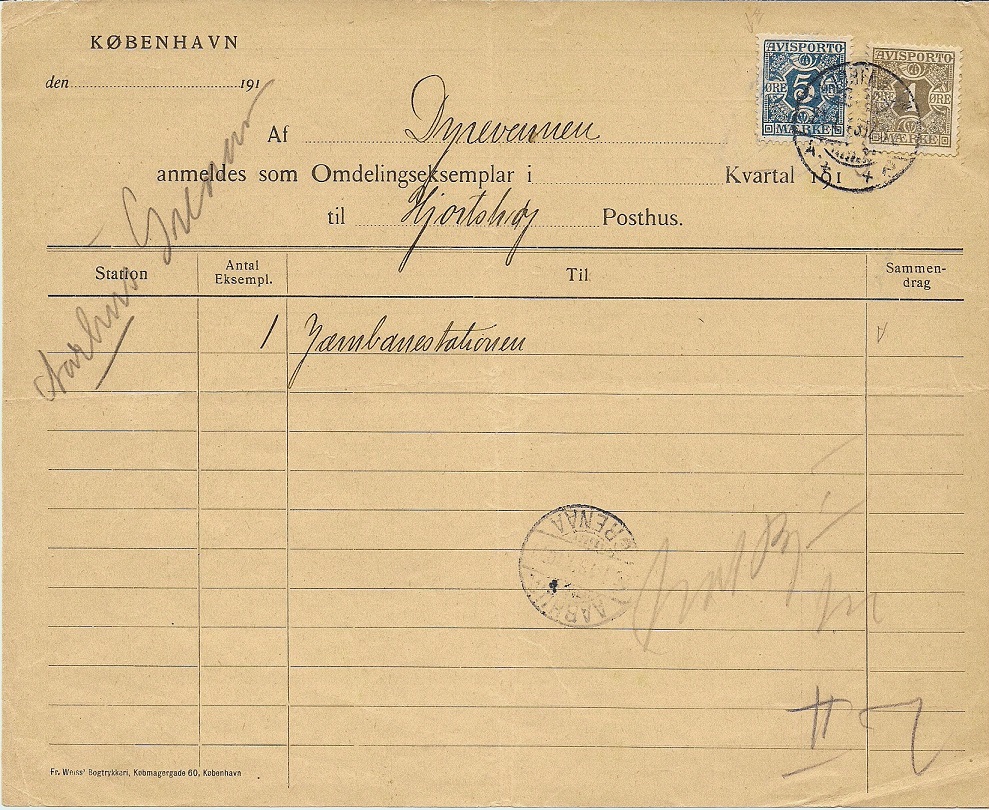 KØBENHAVN
AVISPORTO AVISPORTO
den 191
5 1
ØRE ØRE ØRE
MÆRKE MÆRKE
Af Dyrevennen
anmeldes som Omdelingseksemplar i Kvartal 191
til Hjortshøj Posthus.
Aarhus Grenaa
Station Antal Eksempl. Til Sammen-
drag
1 Jærnbanestationen
GRENAA
AARHUS
II
Fr. Weiss' Bogtrykkeri, Købmagergade 60, København